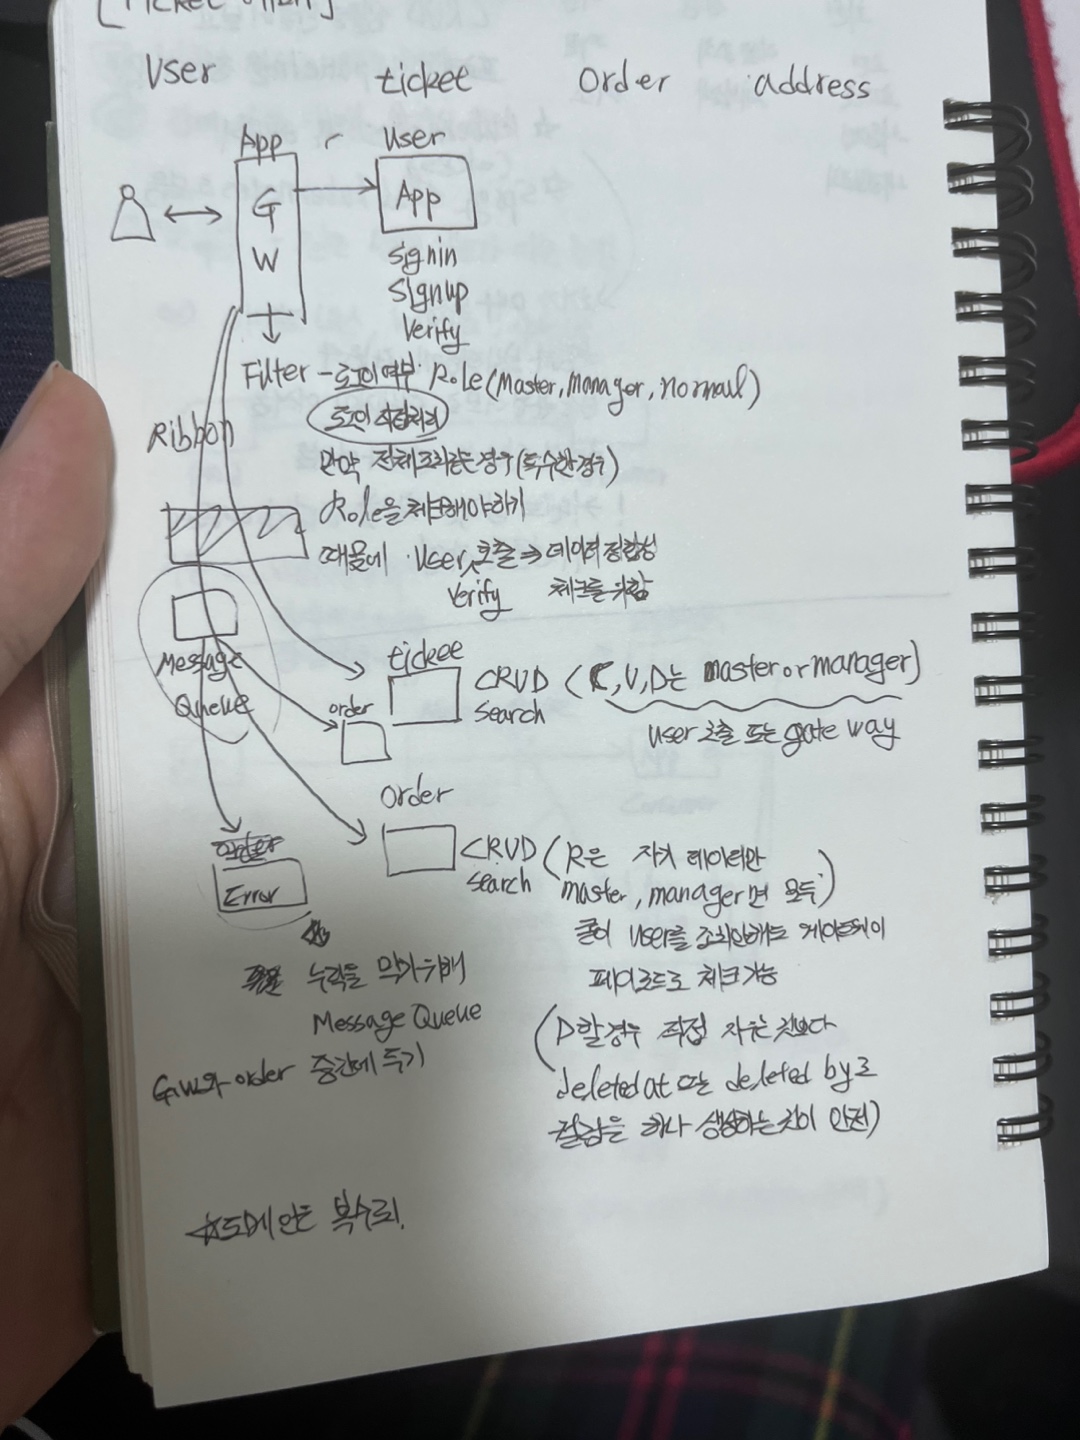 User ticket Order address
App User
G
W
App
signin
signup
Verify
Filter - 로그인여부 Role (Master, manager, normal)
로그인
Ribbon
만약 전체조회하는경우 (특수한경우)
Role을 체크해야하기
때문에 User 호출 → 데이터 정합성
Verify 체크를 위함
Message
Queue
ticket
CRUD (C, U, D는 master or manager)
search
order
user 호출 또는 gate way
Order
CRUD (R은 자기 데이터만
search master, manager면 모두)
굳이 user를 조회안해도 게이트웨이
페이로드로 체크가능
order
Error
누락을 막기위해
Message Queue
G.W와 order 중간에 두기
(D할경우 직접 지우는것보다
deleted at 또는 deleted by로
컬럼을 하나 생성하는것이 안전)
☆도메인은 복수로!